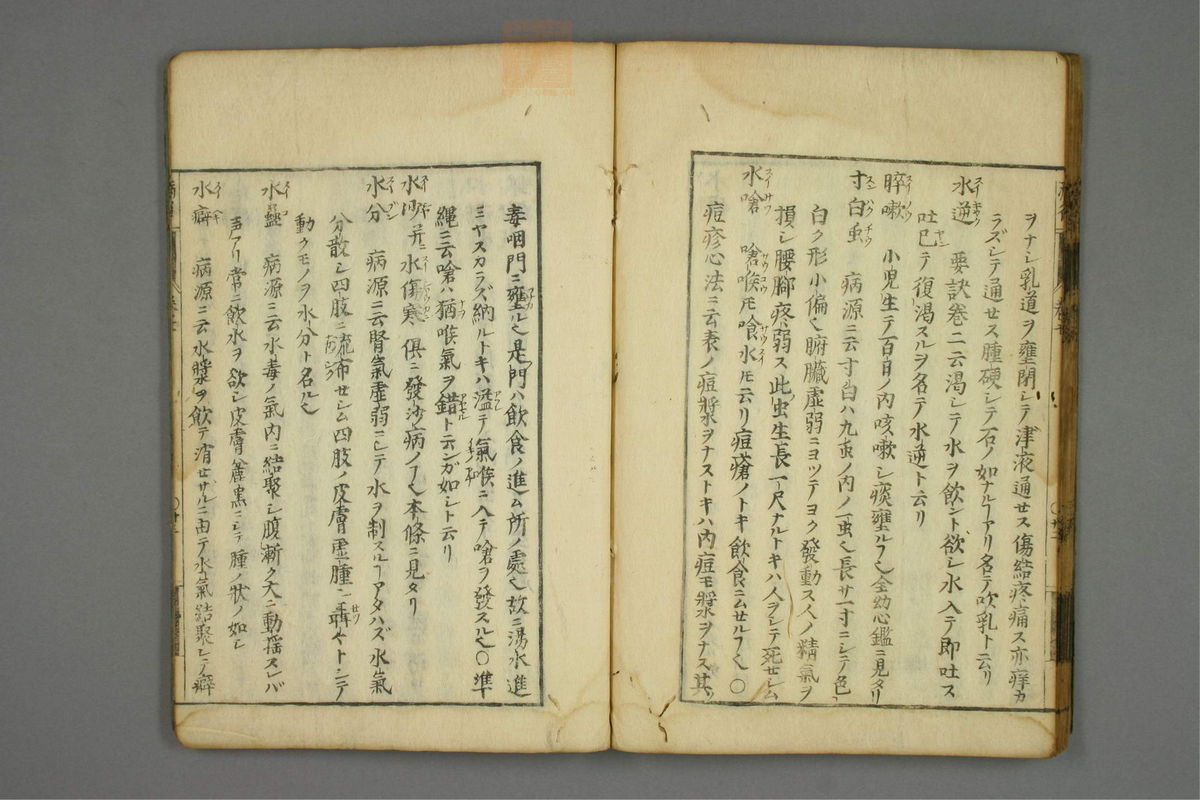 ヲナシ乳道ヲ壅閉シテ津液通セス傷結疼痛ス亦痒カ
ラズシテ通セス腫硬シテ石ノ如ナルヿアリ名テ吹乳ト云リ
水逆 要訣巻二云渇シテ水ヲ飲ント欲シ水入テ即吐ス
吐已テ復渇スルヲ名テ水逆ト云リ
睟嗽 小児生テ百日ノ内咳嗽シ痰壅ルヿ也全幼心鑑ニ見タリ
寸白虫 病源ニ云寸白ハ九虫ノ内ノ一虫也長サ一寸ニシテ色
白ク形小偏也腑臓虚弱ニヨツテヨク發動ス人ノ精氣ヲ
損シ腰脚疼弱ス此虫生長一尺ナルトキハ人ヲシテ死セシム
水嗆 嗆喉モ嗆水モ云リ痘瘡ノトキ飲食ニムセルヿ也〇
痘疹心法ニ云表ノ痘漿ヲナストキハ内痘モ漿ヲナス其
毒咽門ニ壅ル也是門ハ飲食ノ進ム所ノ處也故ニ湯水進
ミヤスカラズ納ルトキハ溢テ氣喉ニ入テ嗆ヲ發スル也〇準
縄ニ云嗆ハ猶喉氣ヲ錯ト云ンガ如シト云リ
水沙 并ニ水傷寒 倶ニ發沙病ノヿ也本條ニ見タリ
水分 病源ニ云腎氣虚弱ニシテ水ヲ制スルヿアタハズ水氣
分散シ四肢ニ流布セシム四肢ノ皮膚虚腫シ聶々トシテ
動クモノヲ水分ト名ル也
水蠱 病源ニ云水毒ノ氣内ニ結聚シ腹漸ク大ニ動揺スレバ
声アリ常ニ飲水ヲ欲シ皮膚麄黒ニシテ腫ノ状ノ如シ
水癖 病源ニ云水漿ヲ飲テ消セザルニ由テ水氣結聚シテ癖